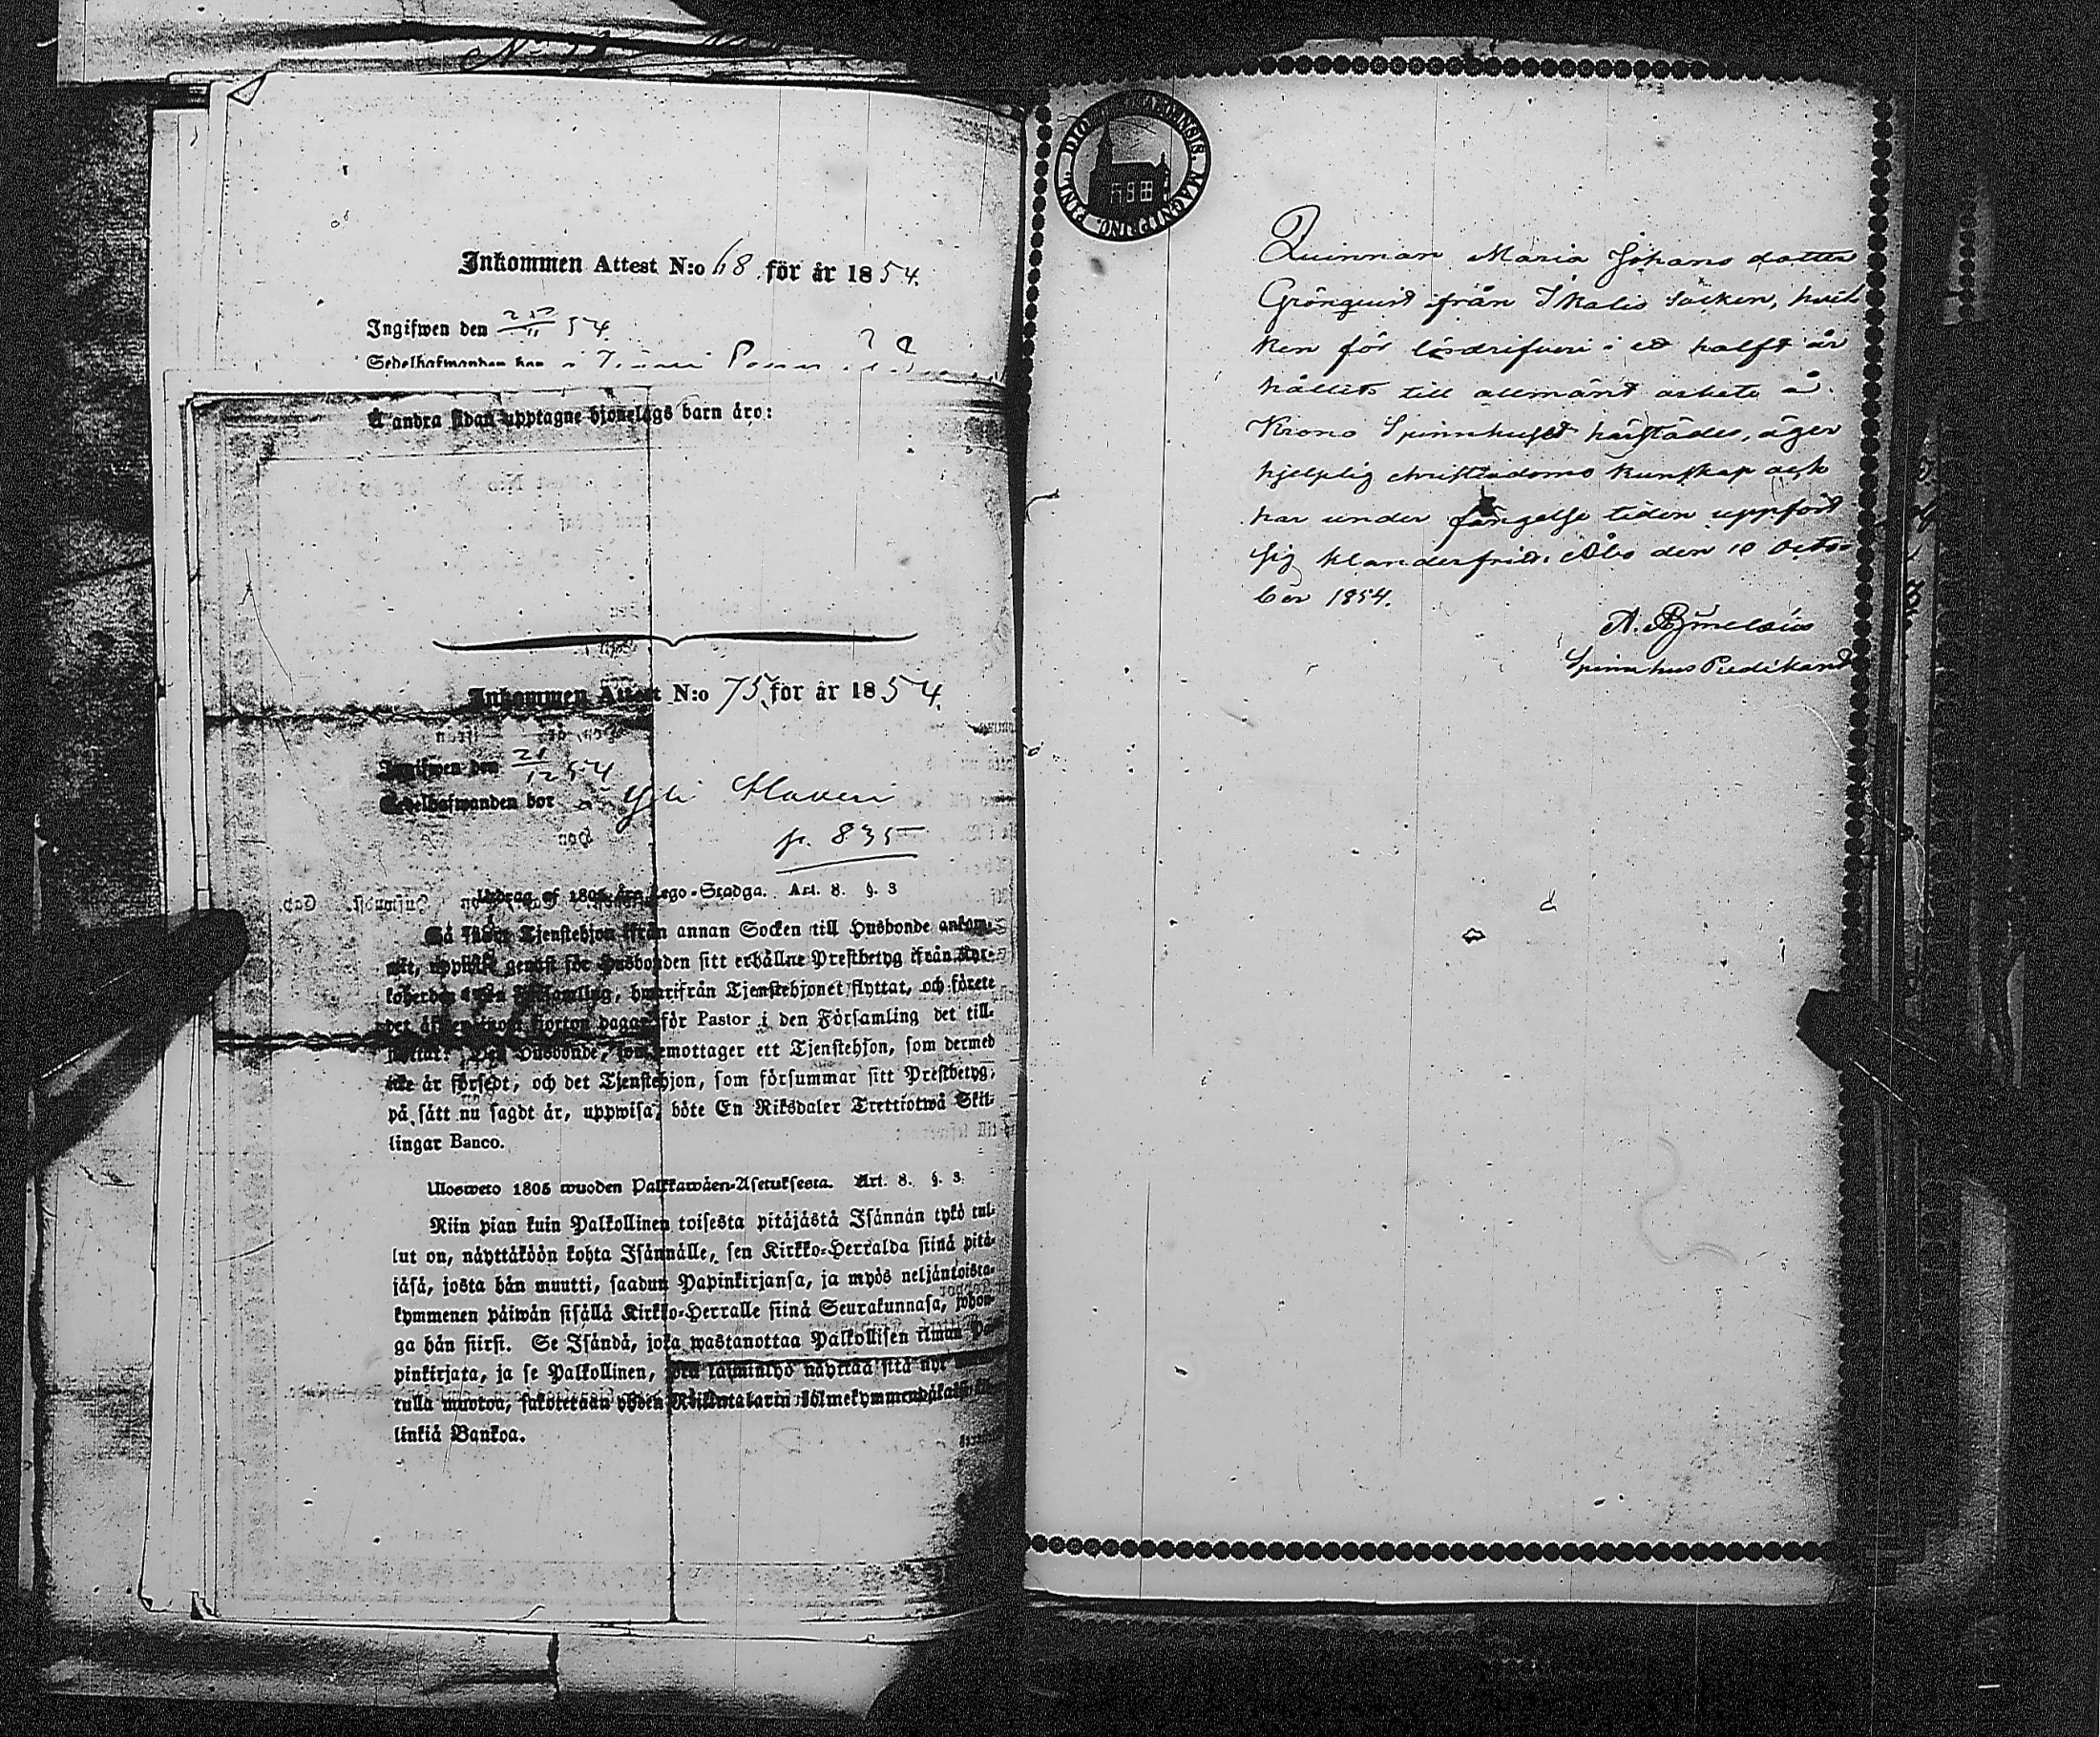 Inkommen Attest N:o 68 för år 1854.
Ingifwen den 25/11 54.
Sedelhafwanden bor i
Å andra sidan upptagne hjonelags barn äro:
Inkommen Attest N:o 75 för år 1854.
Ingifwen den 21/12 54
Sedelhafwanden bor å Yli
p. 835
Utdrag af 1805 års Lego-Stadga. Art. 8. §. 3
Så snart Tjenstehjon ifrån annan Socken till Husbonde ankom-
mit, uppwise genast för Husbonden sitt erhållne Prestbetyg ifrån Kyr-
koherden i den Församling, hwarifrån Tjenstehjonet flyttat, och förete
det äfwen inom fjorton dagar för Pastor i den Församling det till-
flyttat. Den Husbonde, som emottager ett Tjenstehjon, som dermed
icke är försedt, och det Tjenstehjon, som försummar sitt Prestbetyg,
på sätt nu sagdt är, uppwisa, böte En Riksdaler Trettiotwå Skil-
lingar Banco.
Ulosweto 1805 wuoden Palkkawäen-Asetuksesta. Art. 8. §. 3.
Niin pian kuin Palkollinen toisesta pitäjästä Isännän tykö tul-
lut on, näyttäköön kohta Isännälle, sen Kirkko-Herralda siinä pitä-
jäsä, josta hän muutti, saadun Papinkirjansa, ja myös neljäntoista-
kymmenen päiwän sisällä Kirkko-Herralle siinä Seurakunnasa, johon-
ga hän siirsi. Se Isändä, joka wastanottaa Palkollisen ilman Pa-
pinkirjata, ja se Palkollinen, joka laiminlyö näyttää sitä nyt
tulla muotoa, sakotetaan yhden Riikintalarin kolmekymmendäkaksi kil-
linkiä Bankoa.
Quinnan Maria Johans dotter
Grönqvist ifrån Ikalis Socken, hvil-
ken för lösdrifveri i ett halft år
hållits till allmänt arbete å
Krono Spinnhuset härstädes, äger
hjelplig christendoms kunskap och
har under fängelse tiden uppfört
sig klanderfritt. Åbo den 10 Octo-
ber 1854.
A.
Spinnhus Predikant